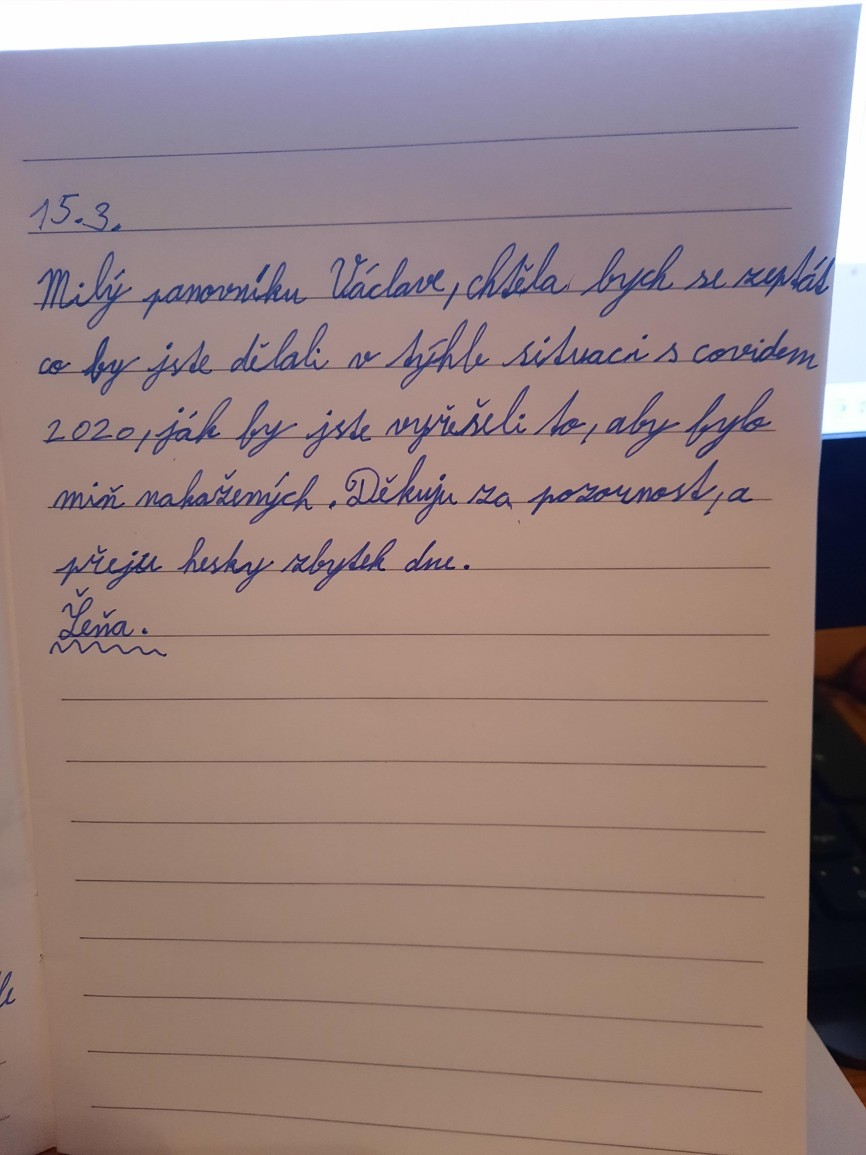 15.3.
Milý panovníku Václave, chtěla bych se zeptát
co by jste dělali v týhle situaci s covidem
2020, ják by jste vyřešeli to, aby bylo
miň nakažených. Děkuju za pozornost, a
přeju hesky zbytek dne.
Žeňa.